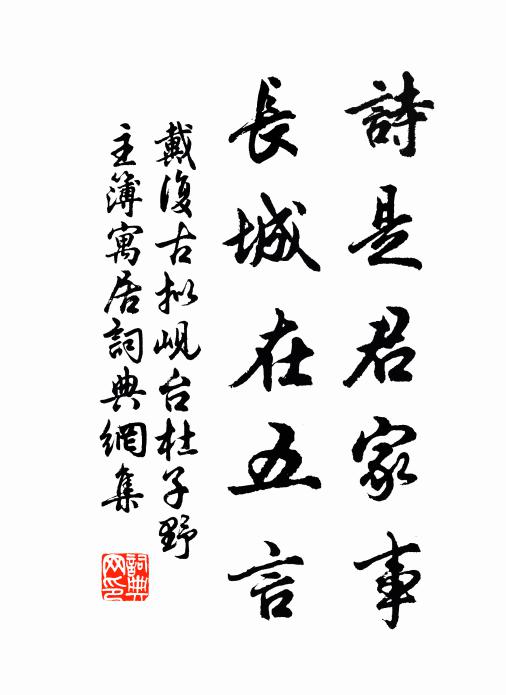 詩是君家事
長城在五言
戴復古拟峴台杜子野
主簿寓居詞典網集
詞典
网印